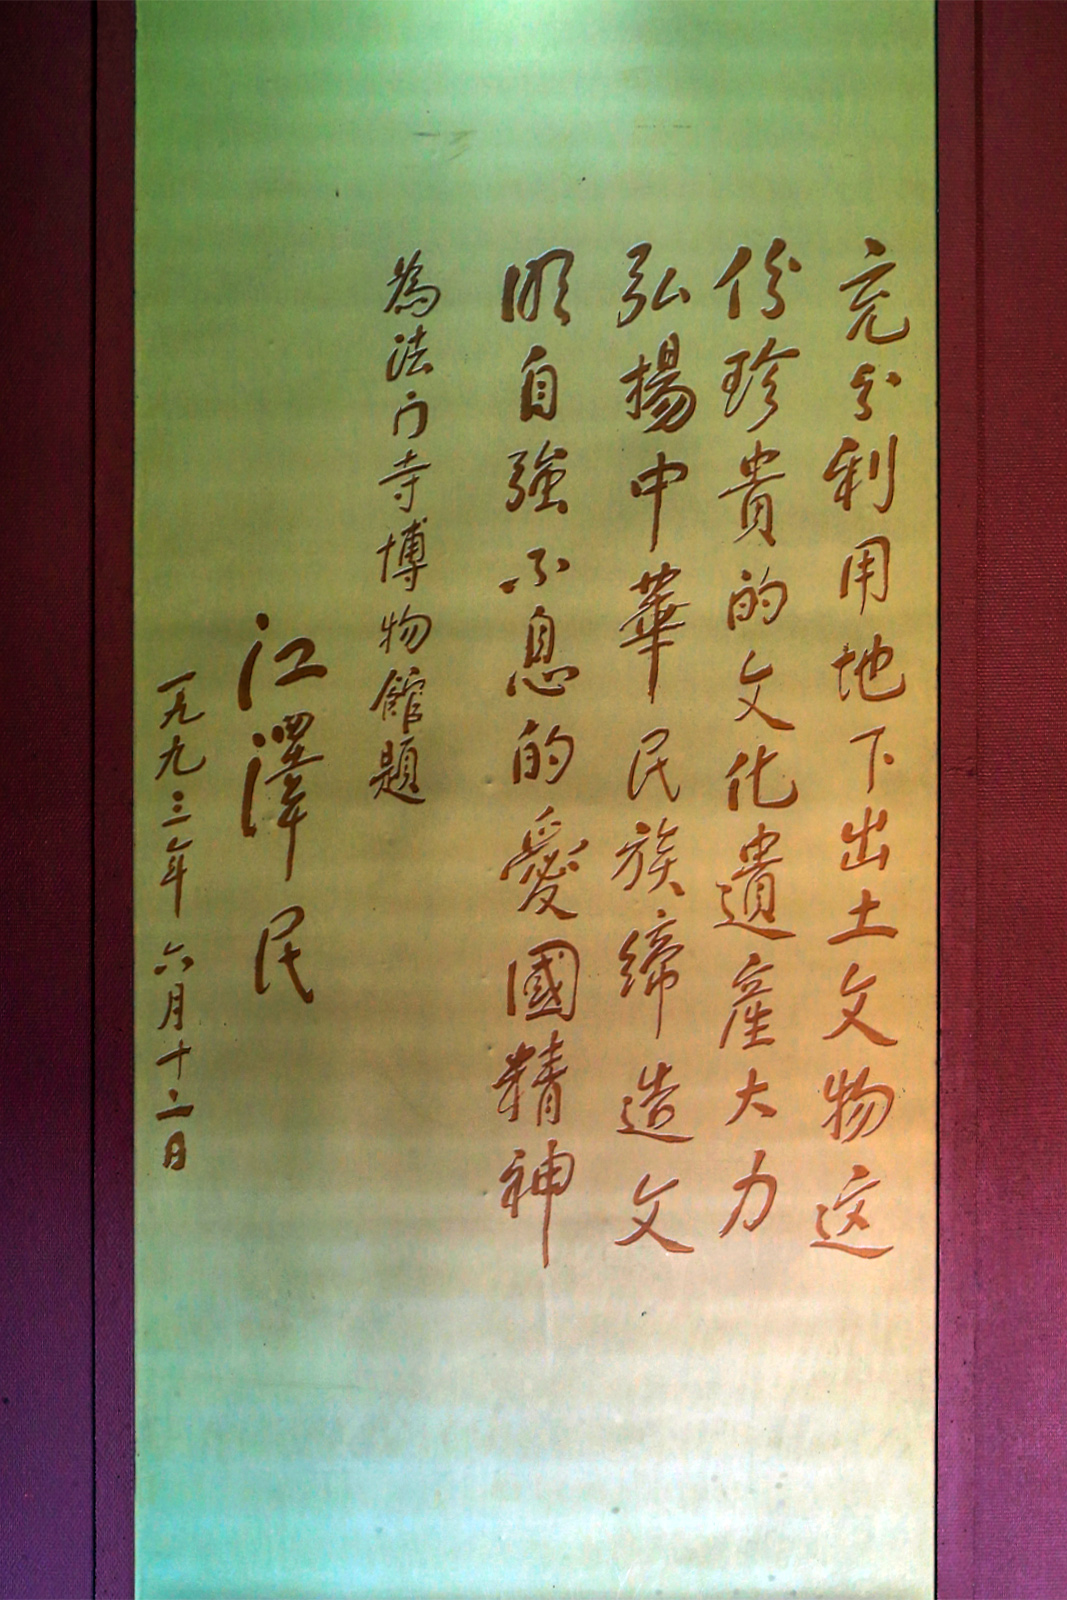 充分利用地下出土文物这
份珍貴的文化遺産大力
弘揚中華民族締造文
明自強不息的愛國精神
為法门寺博物館題
江澤民
一九九三年六月十二日